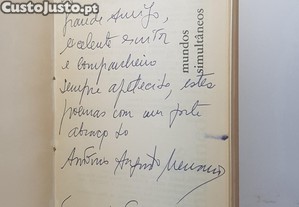 CustoJusto.pt
grande amigo,
excelente escritor
e companheiro
sempre apetecido, estes
poemas com um forte
abraço do
António Augusto Menano
mundos
simultâneos